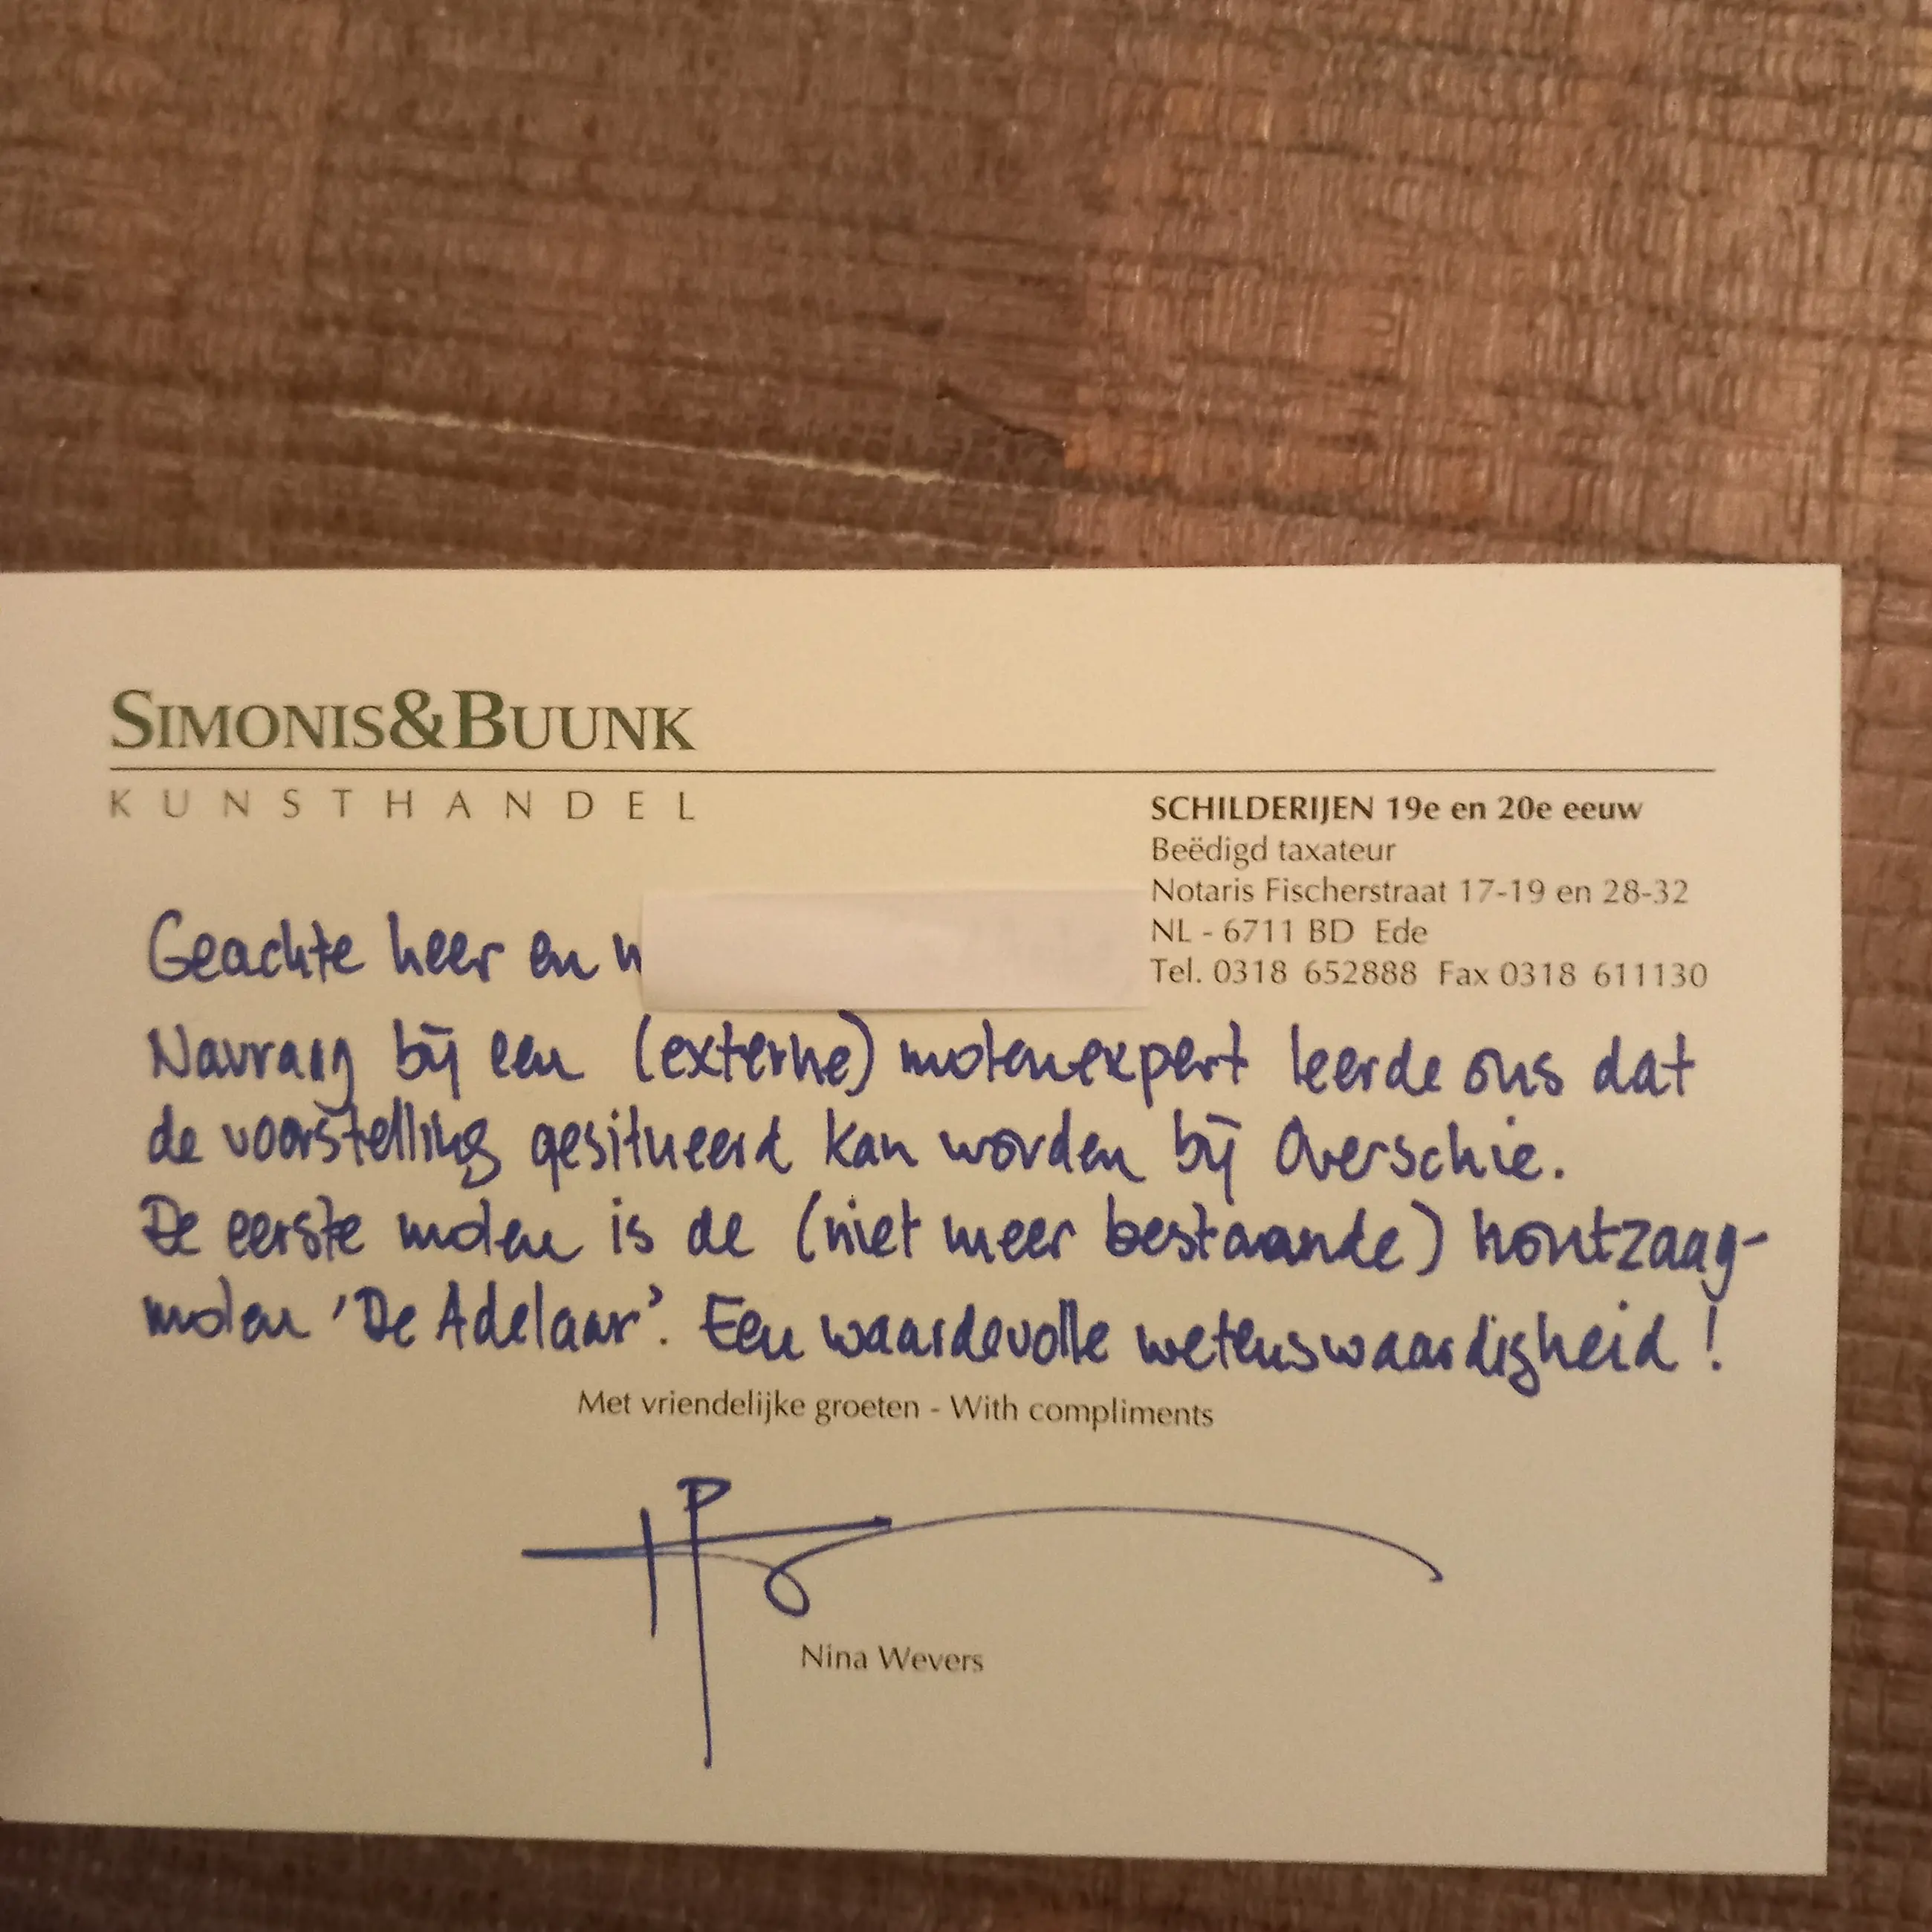 SIMONIS&BUUNK
KUNSTHANDEL
SCHILDERIJEN 19e en 20e eeuw
Beëdigd taxateur
Notaris Fischerstraat 17-19 en 28-32
NL - 6711 BD Ede
Tel. 0318 652888 Fax 0318 611130
Geachte heer en
Navraag bij een (externe) molenexpert leerde ons dat
de voorstelling gesitueerd kan worden bij Overschie.
De eerste molen is de (niet meer bestaande) houtzaag-
molen 'De Adelaar'. Een waardevolle wetenswaardigheid!
Met vriendelijke groeten - With compliments
Nina Wevers